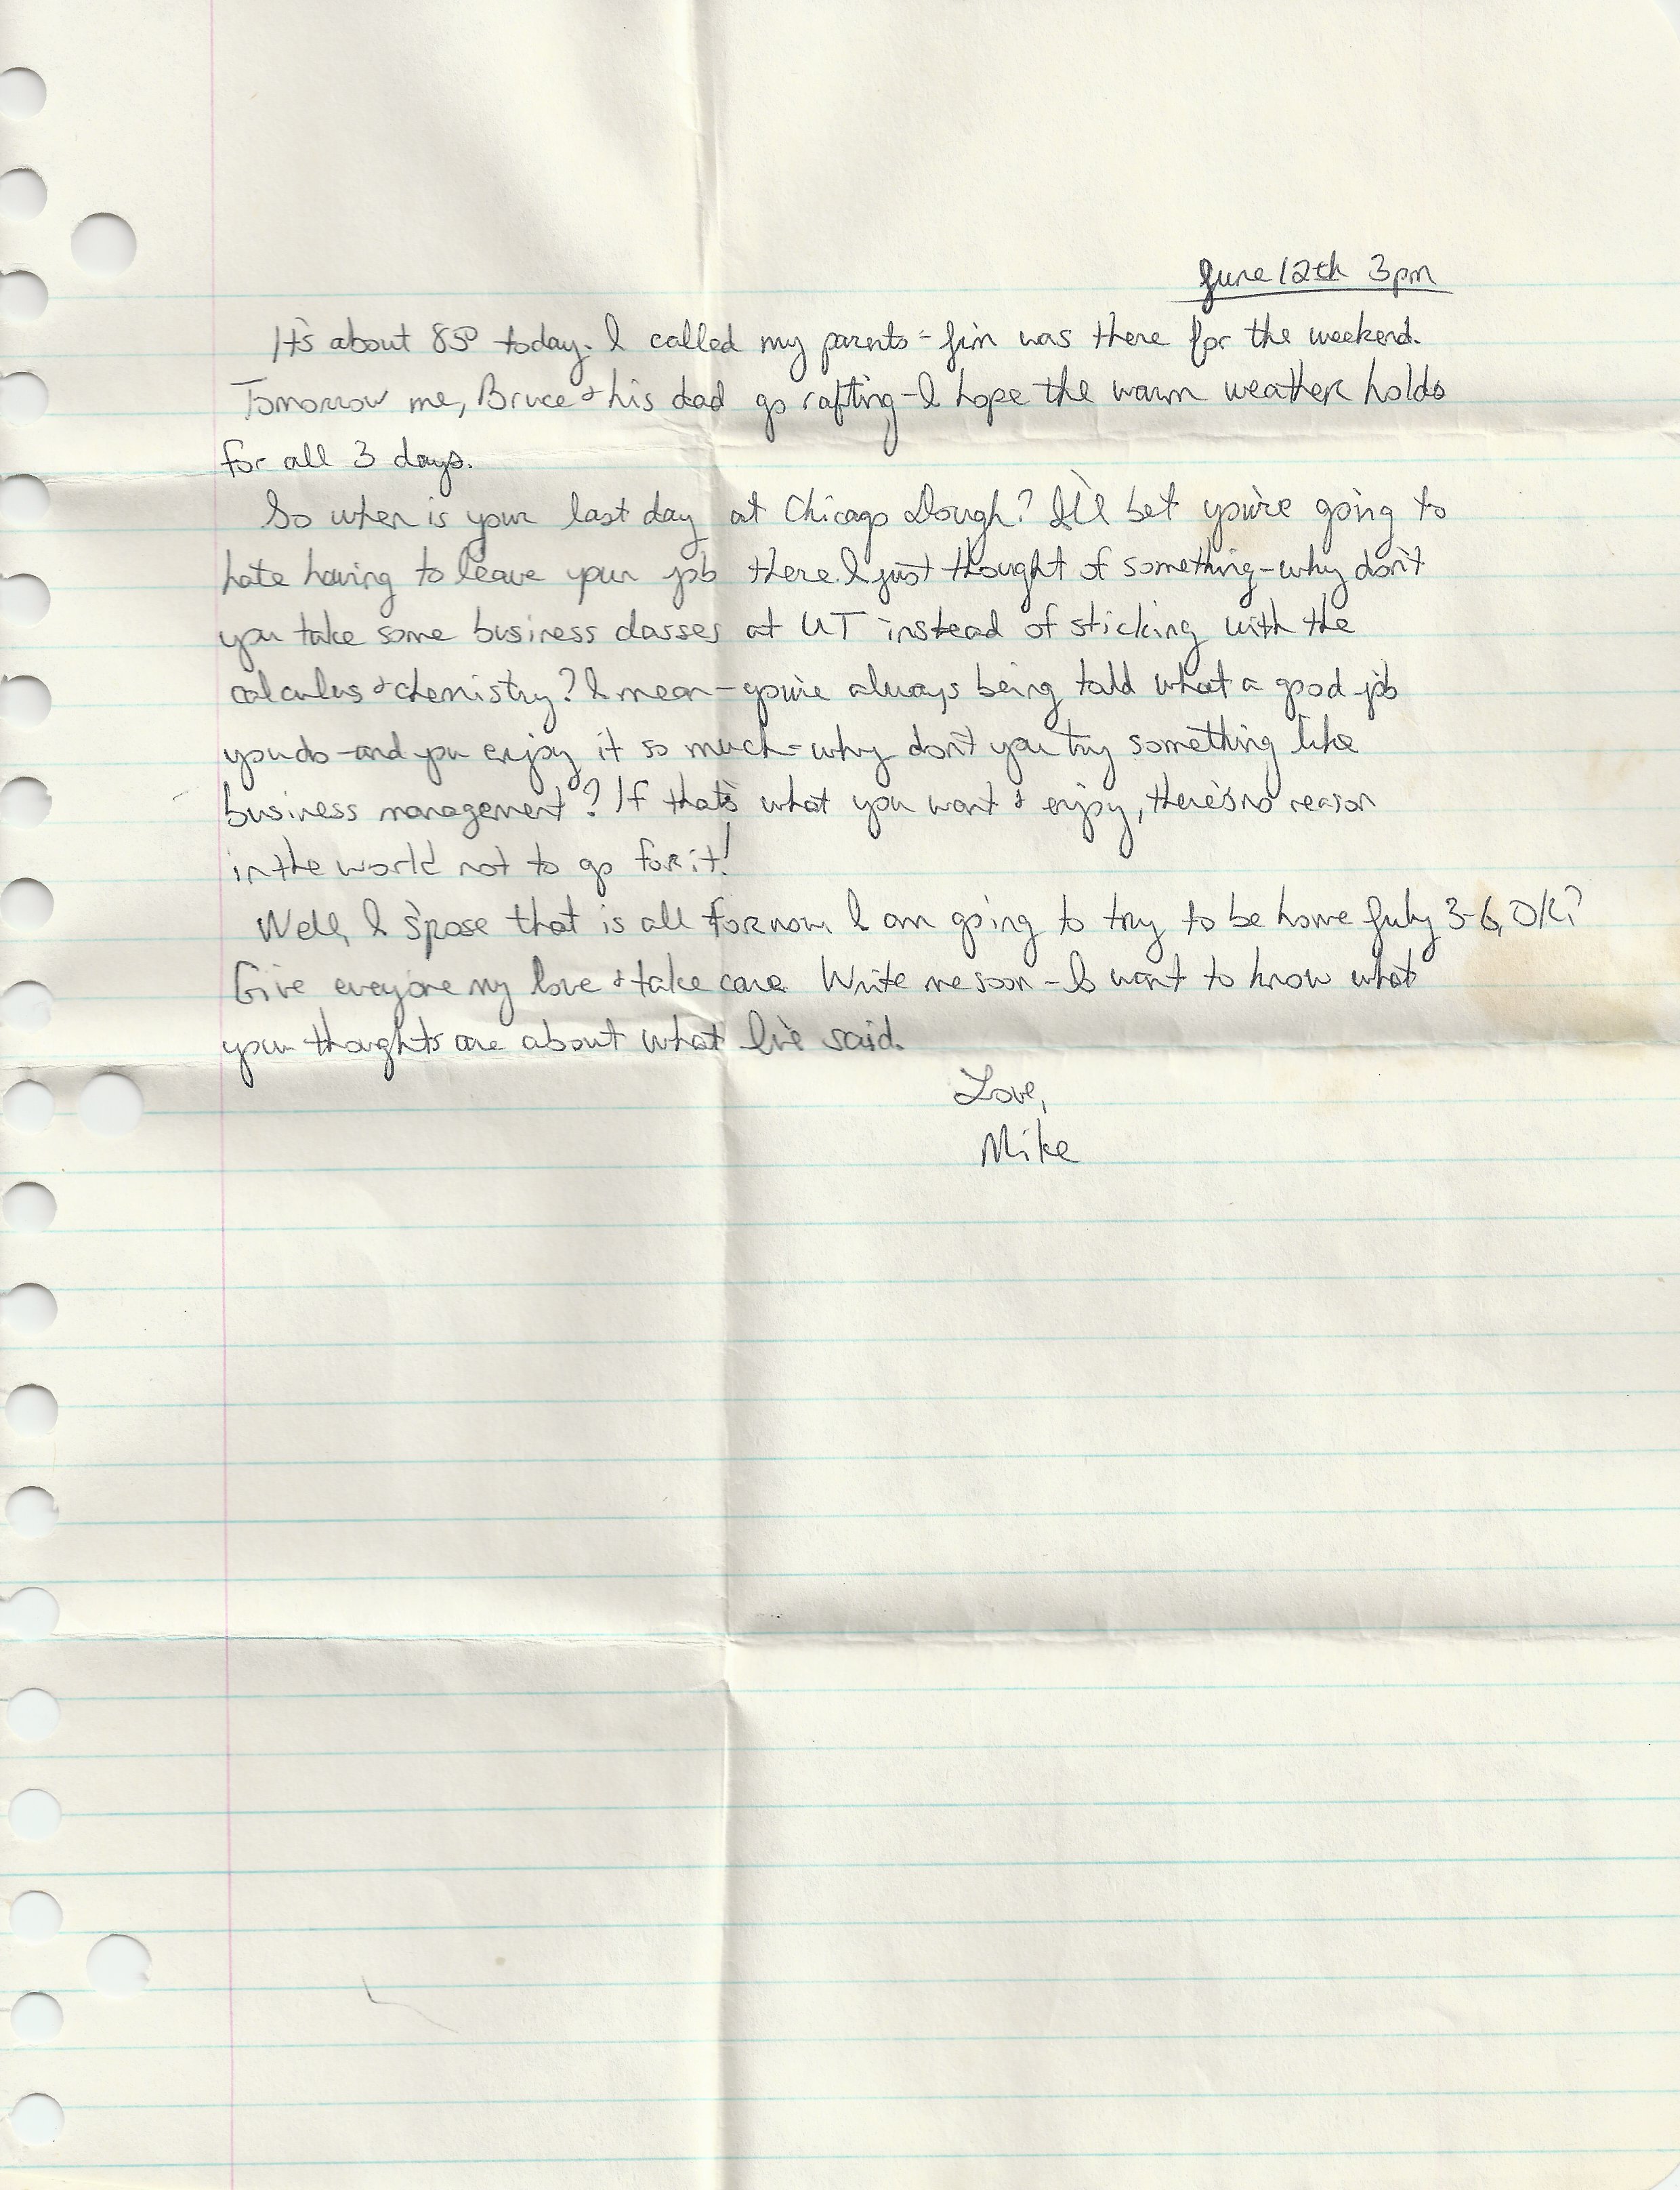 June 12th 3pm
It's about 85° today. I called my parents - Jim was there for the weekend.
Tomorrow me, Bruce & his dad go rafting - I hope the warm weather holds
for all 3 days.
So when is your last day at Chicago Dough? I'll bet you're going to
hate having to leave your job there. I just thought of something - why don't
you take some business classes at UT instead of sticking with the
calculus & chemistry? I mean - you're always being told what a good job
you do - and you enjoy it so much - why don't you try something like
business management? If that's what you want & enjoy, there's no reason
in the world not to go for it!
Well, I s'pose that is all for now. I am going to try to be home July 3-6, OK?
Give everyone my love & take care. Write me soon - I want to know what
your thoughts are about what I've said.
Love,
Mike